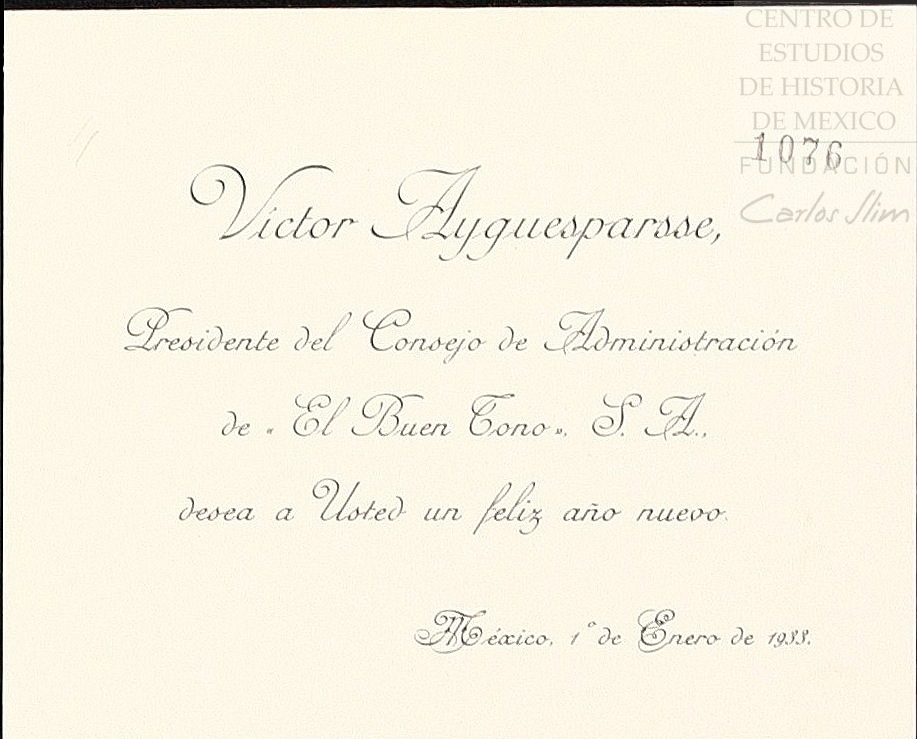 CENTRO DE
ESTUDIOS
DE HISTORIA
DE MEXICO
1076
FUNDACIÓN
Carlos Slim
Victor Ayguesparsse,
Presidente del Consejo de Administración
de « El Buen Tono », S. A.,
desea a Usted un feliz año nuevo.
México, 1º de Enero de 1933.